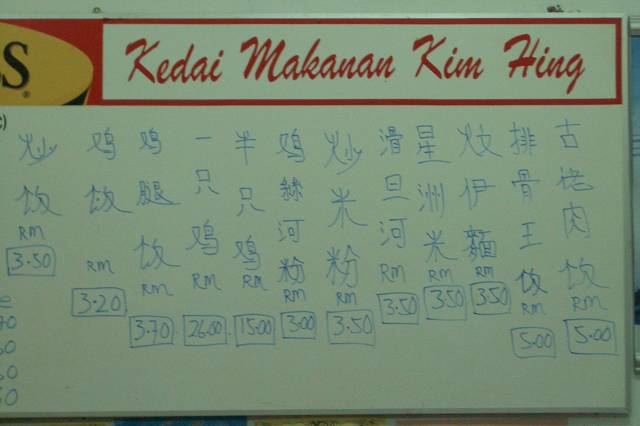 Kedai Makanan Kim Hing
炒饭 RM 3.50
鸡饭 RM 3.20
鸡腿饭 RM 3.70
一只鸡 RM 26.00
半只鸡 RM 15.00
鸡絲河粉 RM 3.00
炒米粉 RM 3.50
滑旦河 RM 3.50
星洲米 RM 3.50
炆伊麵 RM 3.50
排骨王饭 RM 5.00
古佬肉饭 RM 5.00